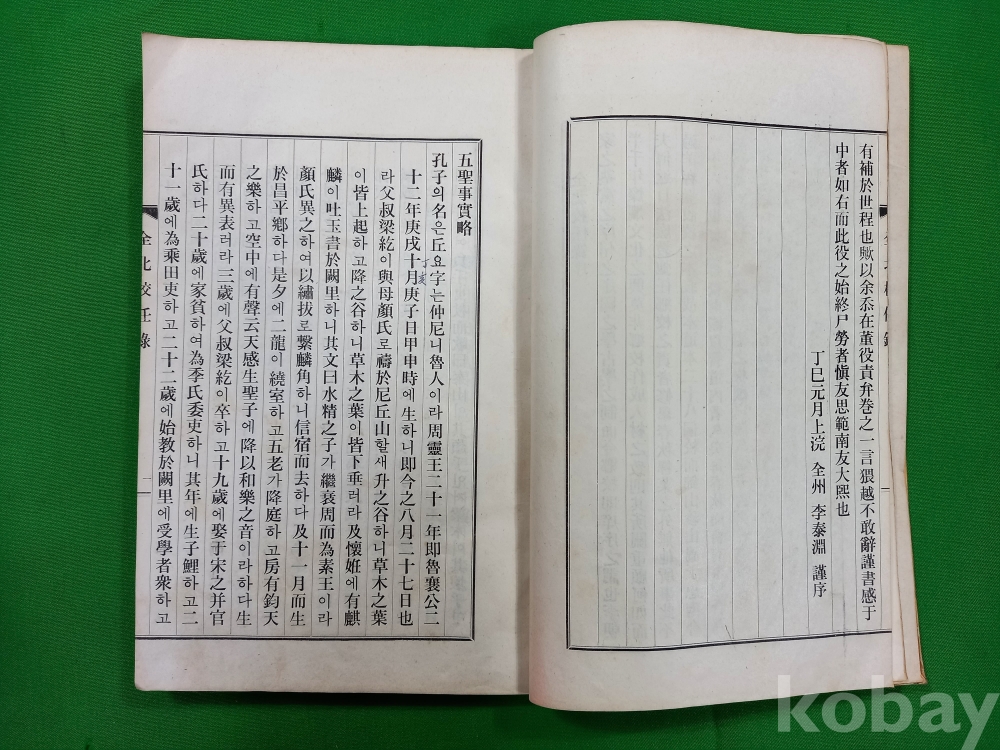 有補於世程也歟以余忝在董役責弁卷之一言猥越不敢辭謹書感于
中者如右而此役之始終尸勞者愼友思範南友大熙也
丁巳元月上浣 全州 李泰淵 謹序
五聖事實略
孔子의名은丘요字는仲尼니魯人이라周靈王二十一年即魯襄公二
十二年庚戌十月庚子日甲申時에生하니即今之八月二十七日也
라父叔梁紇이與母顏氏로禱於尼丘山할새升之谷하니草木之葉
이皆上起하고降之谷하니草木之葉이皆下垂러라及懷姙에有麒
麟이吐玉書於闕里하니其文曰水精之子가繼衰周而為素王이라
顏氏異之하여以繡拔로繫麟角하니信宿而去하다及十一月而生
於昌平鄕하다是夕에二龍이繞室하고五老가降庭하고房有鈞天
之樂하고空中에有聲云天感生聖子에降以和樂之音이라하다生
而有異表러라三歲에父叔梁紇이卒하고十九歲에娶于宋之幷官
氏하다二十歲에家貧하여為季氏委吏하니其年에生子鯉하고二
十一歲에為乘田吏하고二十二歲에始教於闕里에受學者衆하고
全北校任錄
一
kobay